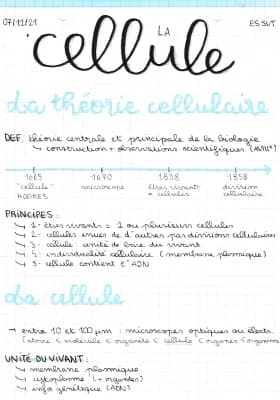 07/12/21
LA
ES SVT
cellule
La théorie cellulaire
DEF. théorie centrale et principale de la biologie
↳ construction + observations scientifiques
1665 1670 1838 1858
"cellule" microscope êtres vivants division
HOOKES = cellules cellulaire
PRINCIPES :
↳ 1- êtres vivants = 1 ou plusieurs cellules
↳ 2- cellules issues de d'autres par divisions cellulaires
↳ 3- cellule : unité de base du vivant
↳ 4- individualité cellulaire (membrane plasmique)
↳ 5- cellule contient l'ADN
La cellule
→ entre 10 et 100 µm : microscopes optiques ou électr.
(atome < molécule < organite < cellule < organe < organisme
UNITÉ DU VIVANT :
↳ membrane plasmique
↳ cytoplasme (+ organites)
↳ info génétique (ADN)